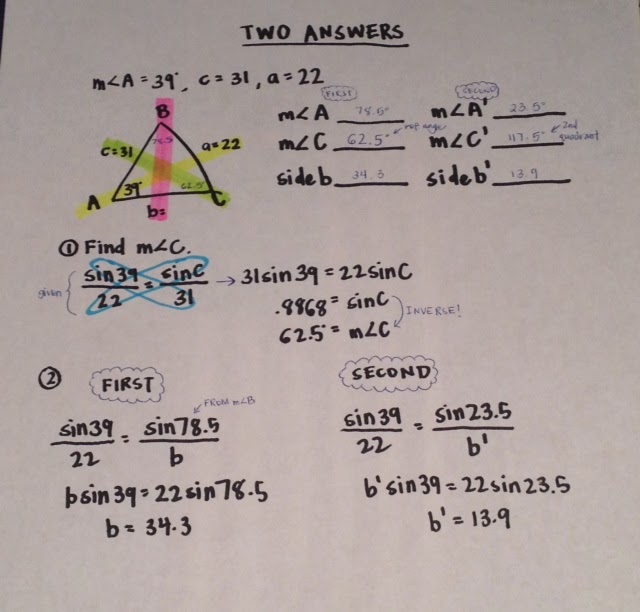 TWO ANSWERS
m∠A = 39°, c = 31, a = 22
FIRST
m∠A 78.5°
m∠C 62.5° ← ref angle
side b 34.3
SECOND
m∠A' 23.5°
m∠C' 117.5° ← 2nd quadrant
side b' 13.9
B
78.5
c = 31
a = 22
A
39°
62.5°
C
b =
① Find m∠C.
given { sin 39 / 22 = sin C / 31 → 31 sin 39 = 22 sin C
.8868 = sin C
62.5° = m∠C
INVERSE!
②
FIRST
FROM m∠B
sin 39 / 22 = sin 78.5 / b
b sin 39 = 22 sin 78.5
b = 34.3
SECOND
sin 39 / 22 = sin 23.5 / b'
b' sin 39 = 22 sin 23.5
b' = 13.9